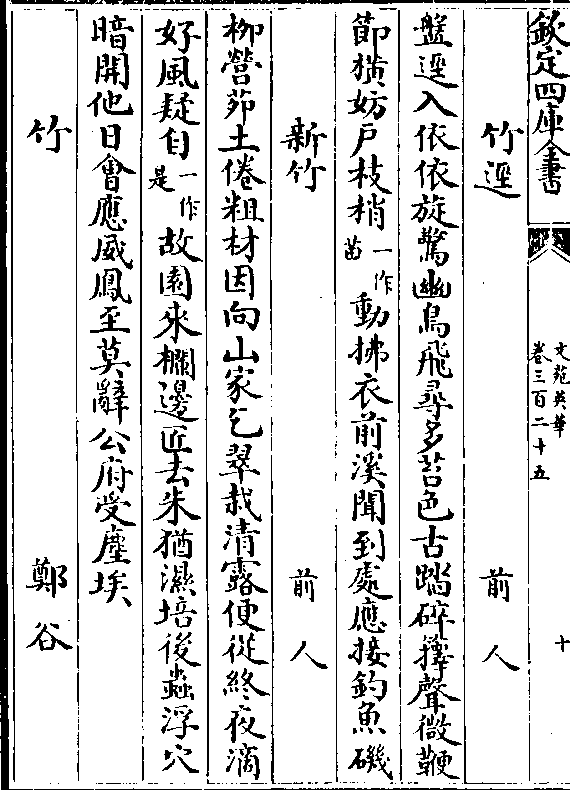 欽定四庫全書 文苑英華 卷三百二十五 十
竹逕 前人
盤逕入依依旋驚幽鳥飛尋多苔色古踏碎擇聲微鞭
節橫妨戶枝梢一作苗動拂衣前溪聞到處應接釣魚磯
新竹 前人
柳營茆土倦粗材因向山家乞翠栽清露便從終夜滴
好風疑自一作是故園來欄邊匠去朱猶濕培後蟲浮穴
暗開他日會應威鳳至莫辭公府受塵埃
竹 鄭谷